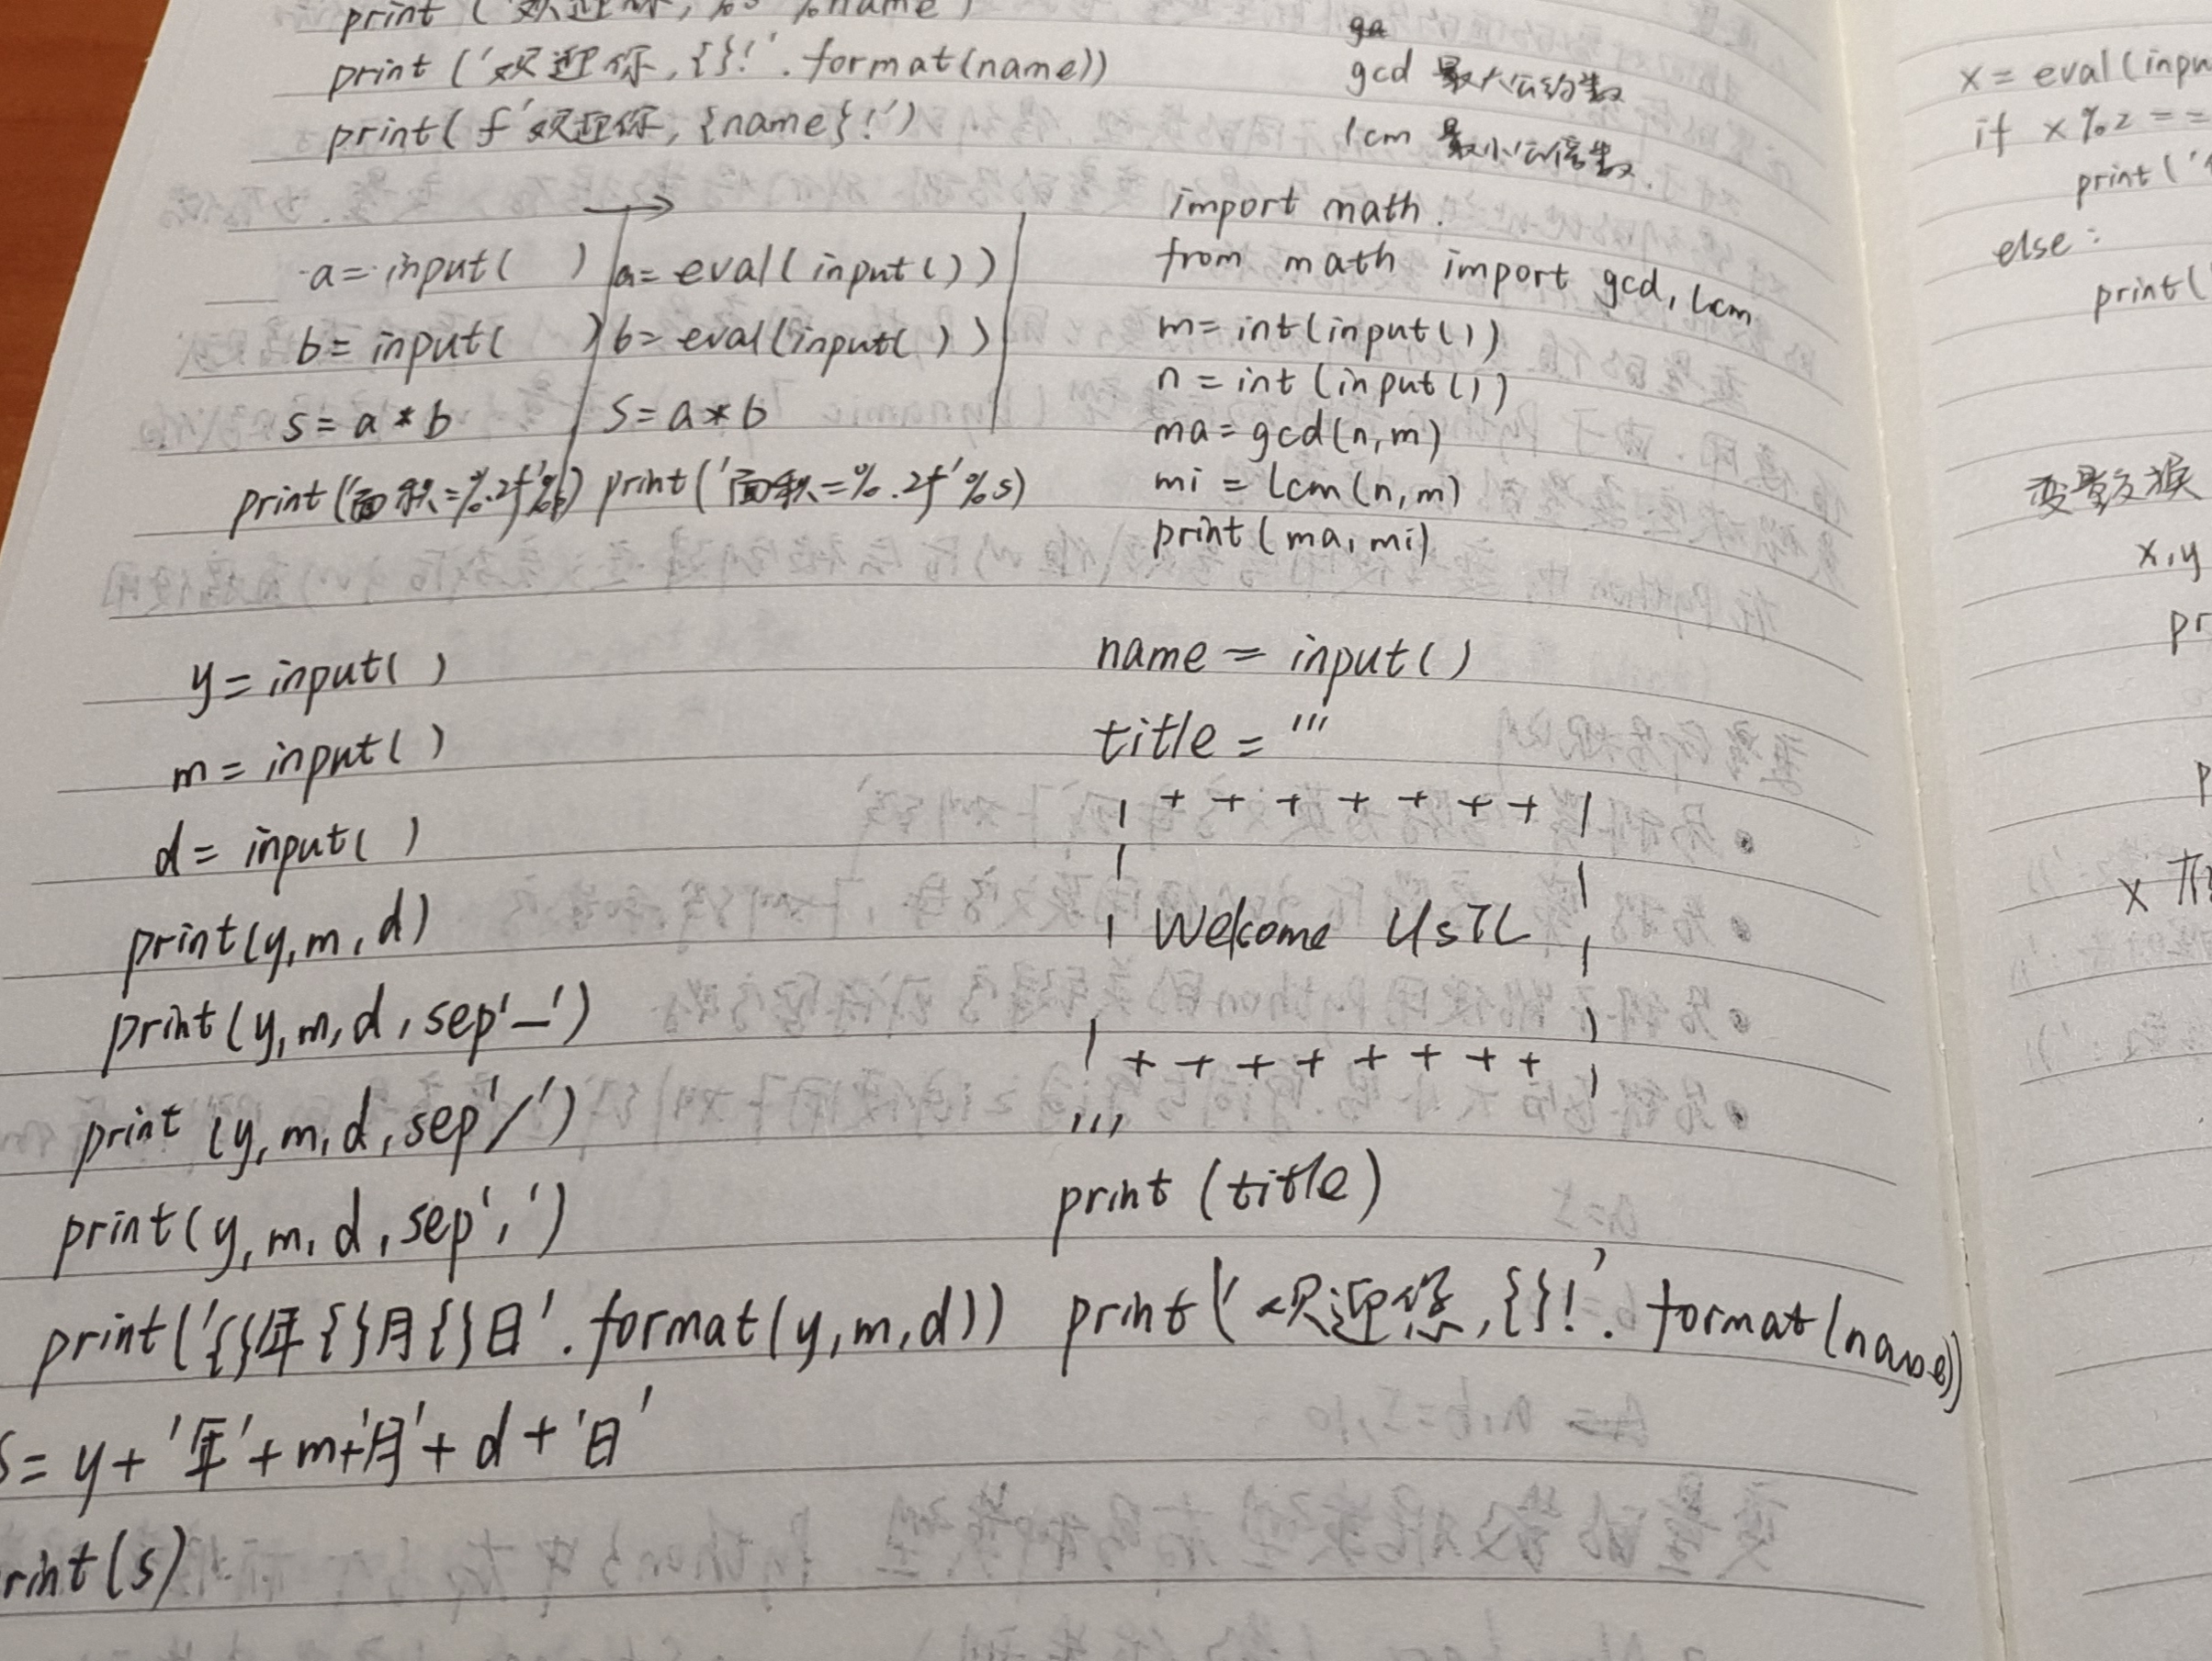 print('欢迎你,%s'%name)
print('欢迎你,{}!'.format(name))
print(f'欢迎你,{name}!')
a=input( )
b=input( )
s=a*b
print('面积=%.2f'%s)
a=eval(input())
b=eval(input())
S=a*b
print('面积=%.2f'%s)
gcd 最大公约数
lcm 最小公倍数
import math.
from math import gcd,lcm
m=int(input())
n=int(input())
ma=gcd(n,m)
mi=lcm(n,m)
print(ma,mi)
y=input()
m=input()
d=input()
print(y,m,d)
print(y,m,d,sep'—')
print(y,m,d,sep'/')
print(y,m,d,sep',')
print('{}年{}月{}日'.format(y,m,d))
s=y+'年'+m+'月'+d+'日'
rint(s)
name=input()
title='''
| + + + + + + + |
| |
| Welcome UsTL |
| + + + + + + + + |
'''
print(title)
print('欢迎您,{}!'.format(name))
x=eval(inpu
if x%2==
print('
else:
print(
变量交换
x,y
pr
p
x